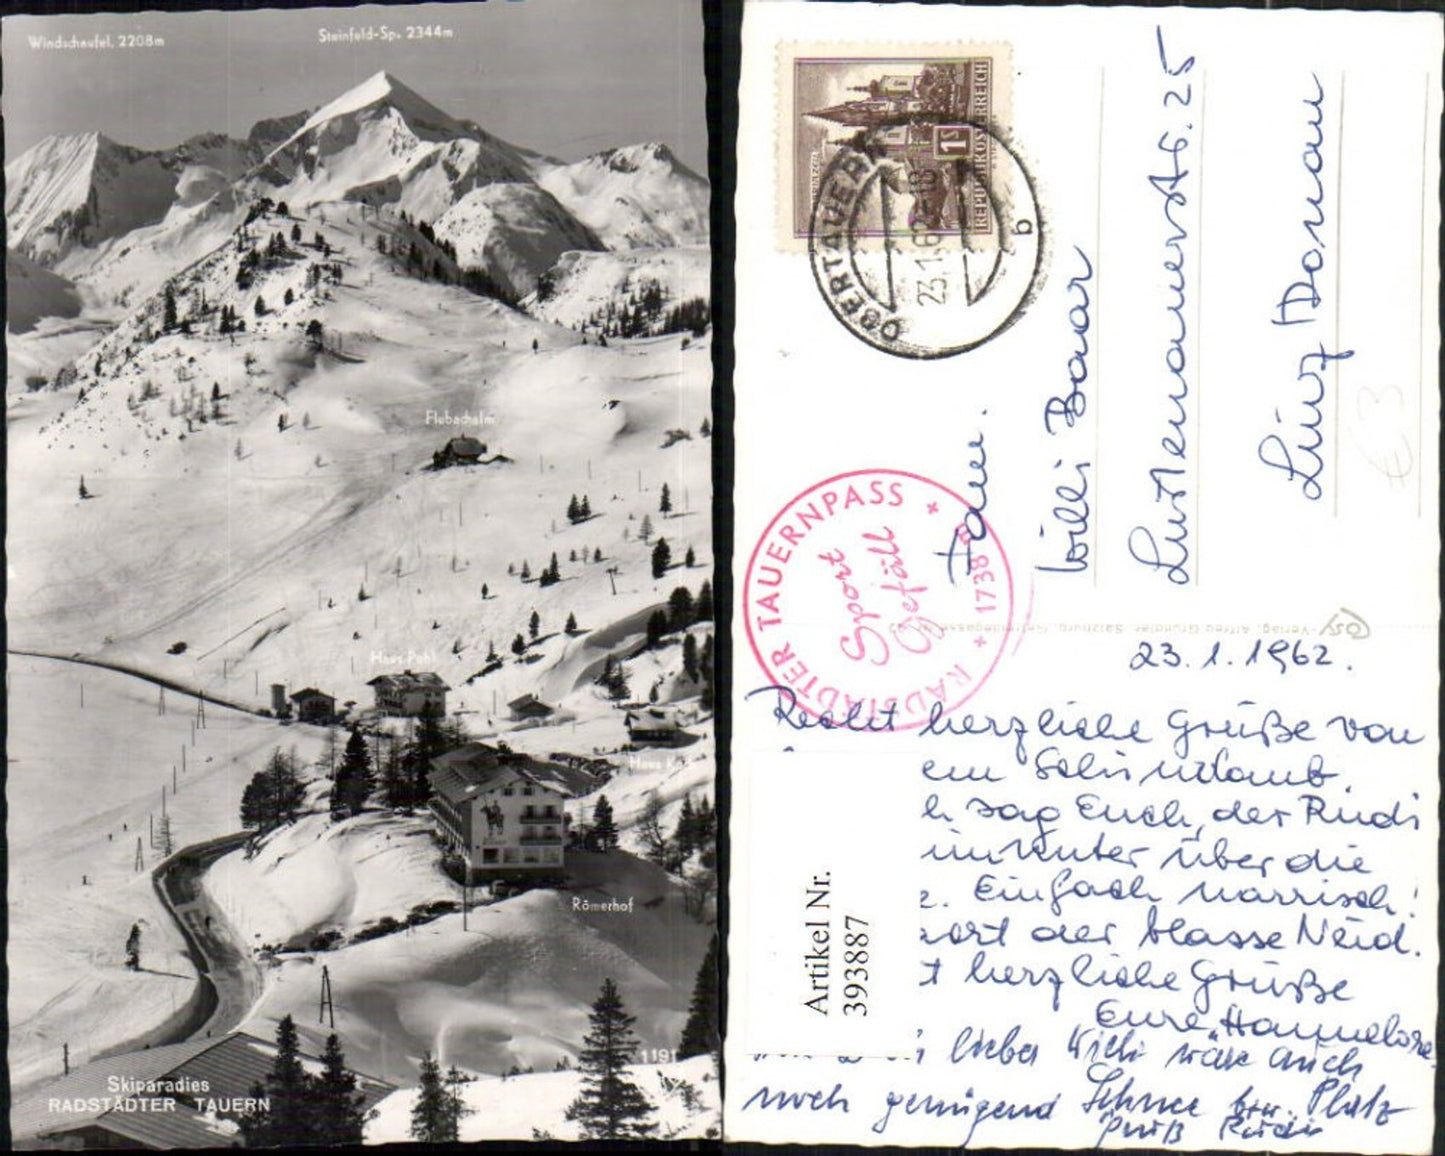 Windschaufel, 2208m
Steinfeld-Sp. 2344m
Flubachalm
Haus Pohl
Haus
Römerhof
1191
Skiparadies
RADSTÄDTER TAUERN
REPUBLIK ÖSTERREICH
1S
OBERTAUERN
23.1.62
b
RADSTÄDTER TAUERNPASS
1738 m
Sport
Gefäll
Fam.
Willi Baar
25
Linz / Donau
€3
Cosy-Verlag, Alfred Gründler, Salzburg, Getreidegasse
23.1.1962.
Recht herzliche Grüße von
em Schiurlaub.
h sag Euch, der Rudi
hinunter über die
Einfach narrisch!
der blasse Neid.
t herzliche Grüße
Eure Hannelore
lieber Willi wäre auch
noch genügend Schnee bzw. Platz
Gruß Rudi
Artikel Nr.
393887